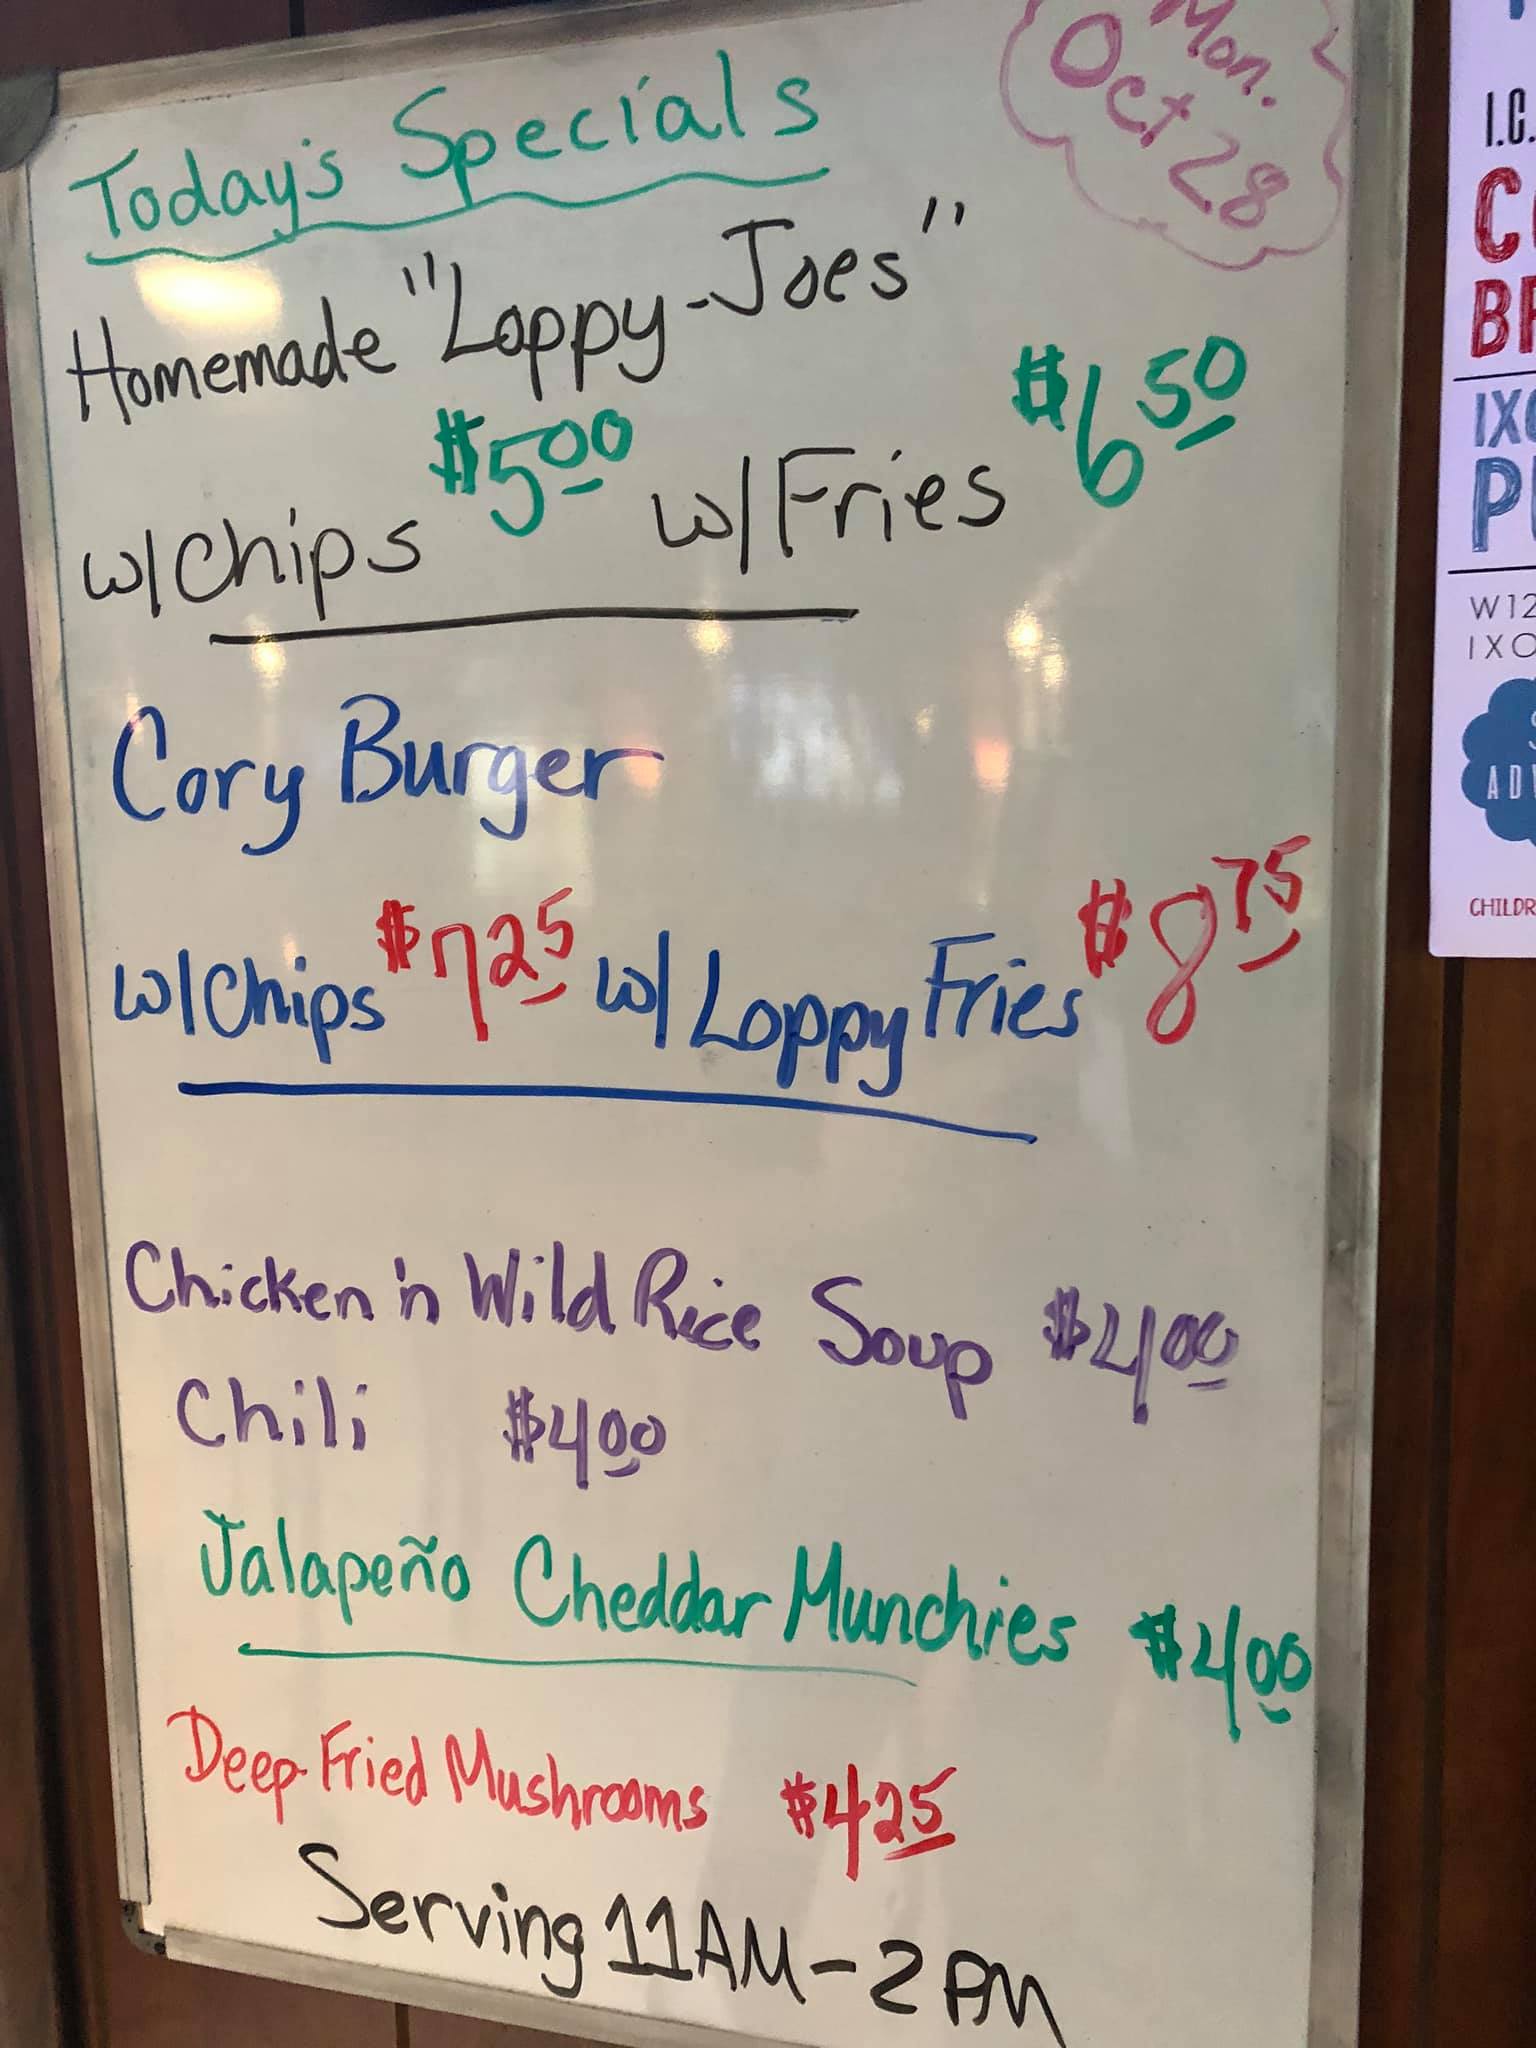 Mon.
Oct 28
Today's Specials
Homemade "Loppy-Joes"
w/Chips $5.00 w/Fries $6.50
Cory Burger
w/Chips $7.25 w/Loppy Fries $8.75
Chicken 'n Wild Rice Soup $4.00
Chili $4.00
Jalapeño Cheddar Munchies $4.00
Deep-Fried Mushrooms $4.25
Serving 11AM-2PM
I.C.
IXO
W12
IXO
ADV
CHILDR